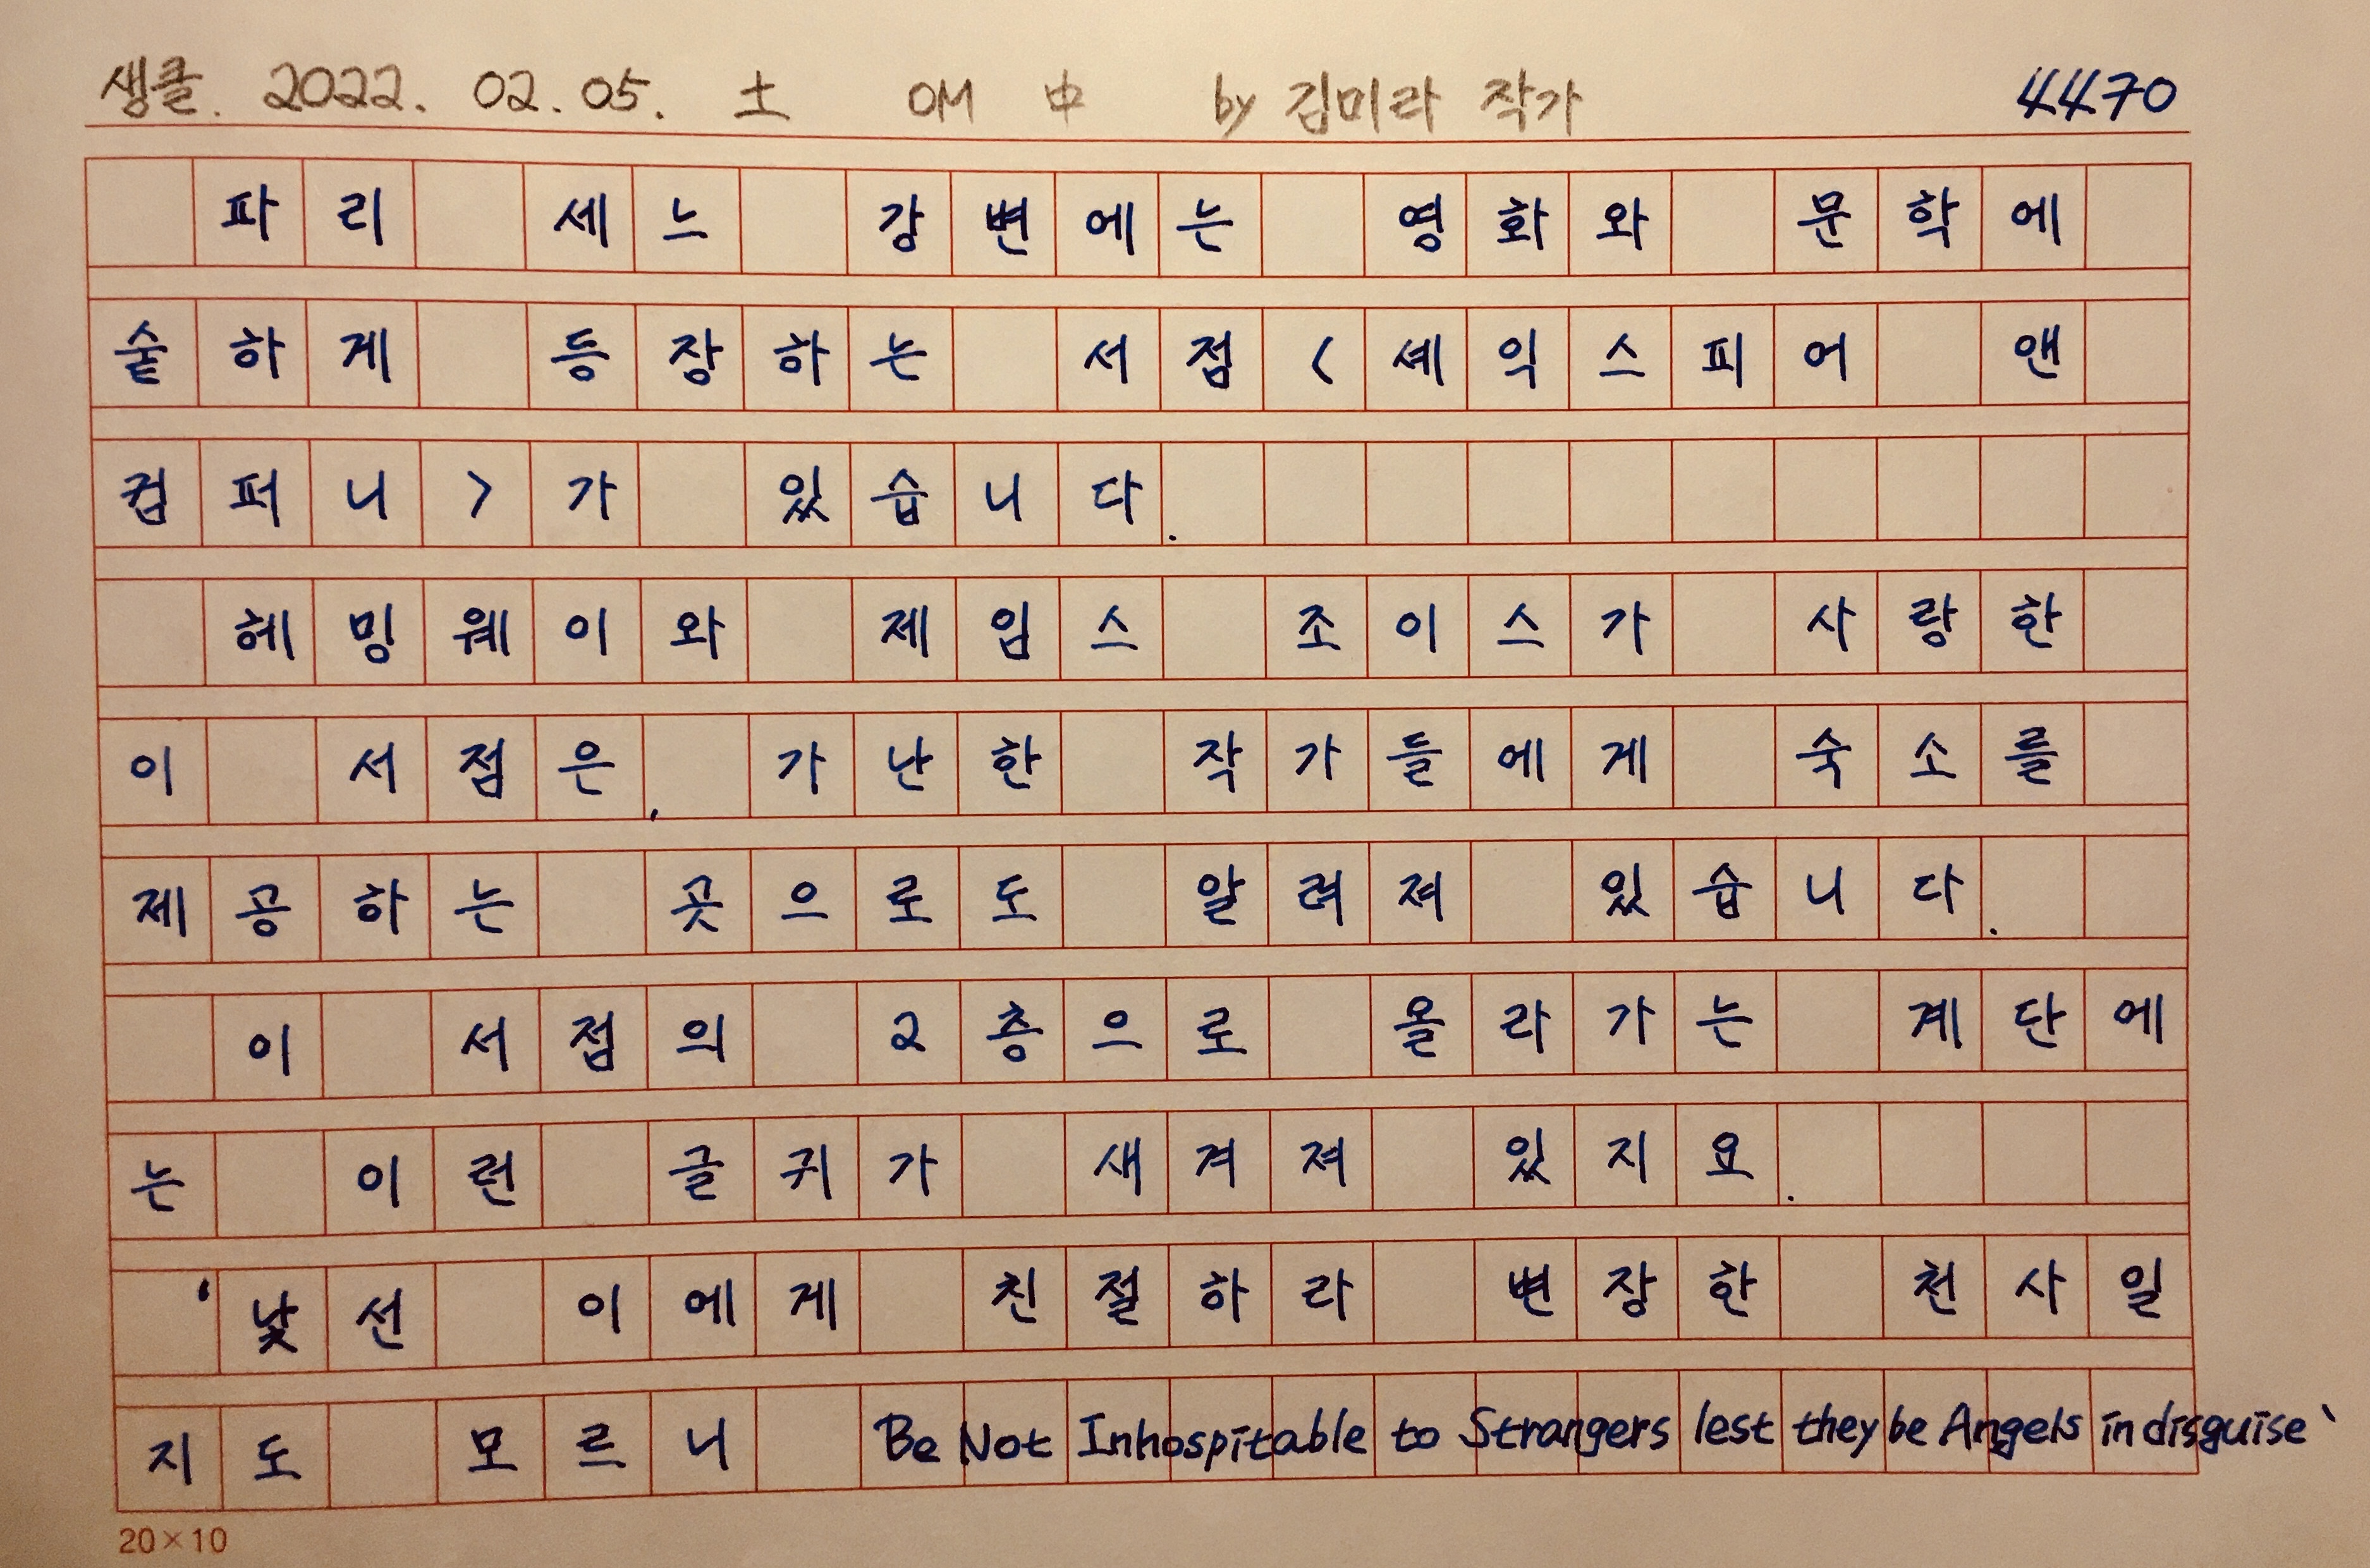 생클. 2022. 02. 05. 土 OM 中 by 김미라 작가 4470
파리 세느 강변에는 영화와 문학에
숱하게 등장하는 서점<셰익스피어 앤
컴퍼니>가 있습니다.
헤밍웨이와 제임스 조이스가 사랑한
이 서점은, 가난한 작가들에게 숙소를
제공하는 곳으로도 알려져 있습니다.
이 서점의 2층으로 올라가는 계단에
는 이런 글귀가 새겨져 있지요.
'낯선 이에게 친절하라 변장한 천사일
지도 모르니 Be Not Inhospitable to Strangers lest they be Angels in disguise`
20×10